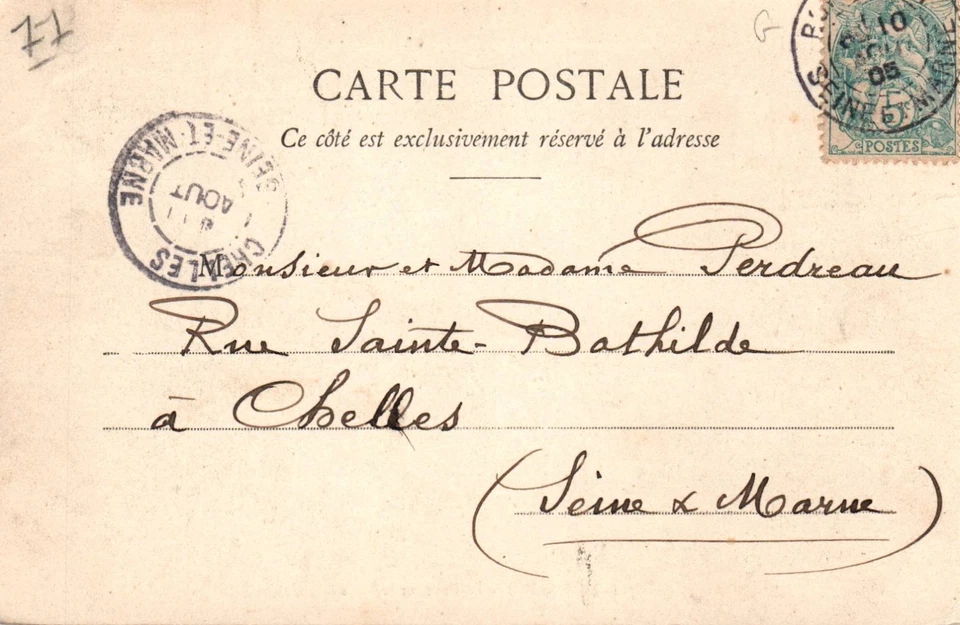 77
G
CARTE POSTALE
Ce côté est exclusivement réservé à l'adresse
10
AOUT
05
SEINE-ET-MARNE
5
POSTES
CHELLES
AOUT
SEINE-ET-MARNE
Monsieur et Madame Perdreau
Rue Sainte-Bathilde
à Chelles
(Seine & Marne)